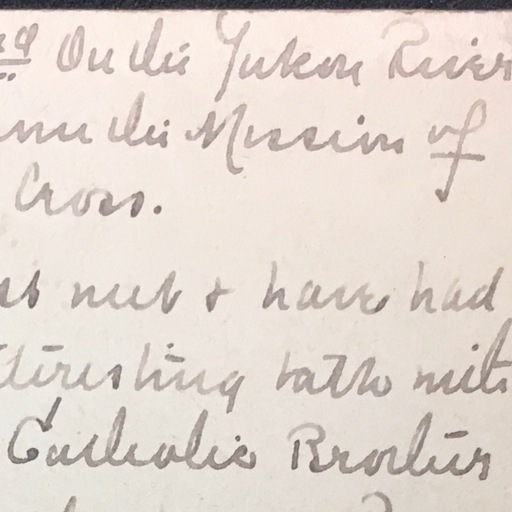 On the Yukon River
the Mission of
Cross.
met & have had
interesting talk with
Catholic Brothers